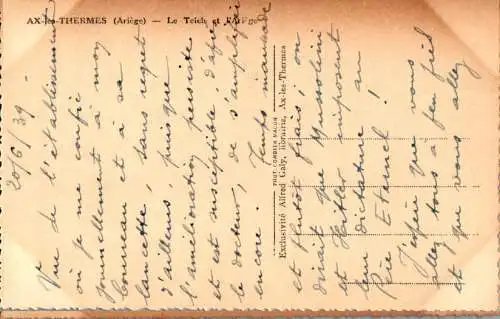 AX-les-THERMES (Ariège) — Le Teich et l'Ariège
20/6/39 -
Vue de l'établissement
où je me confie
journellement à mon
bourreau et à sa
lancette, sans regret
d'ailleurs, puisque
l'amélioration persiste
et est susceptible, d'après
le docteur, de s'amplifier
encore. Temps maussade
et plutôt frais; on
dirait que Mussolini
et Hitler imposent
leur dictature au
Père Eternel!
J'espère que vous
allez tous à peu près
et que vous allez
TOUT CORNIER MACON
Exclusivité Alfred Gaby, libraire, Ax-les-Thermes